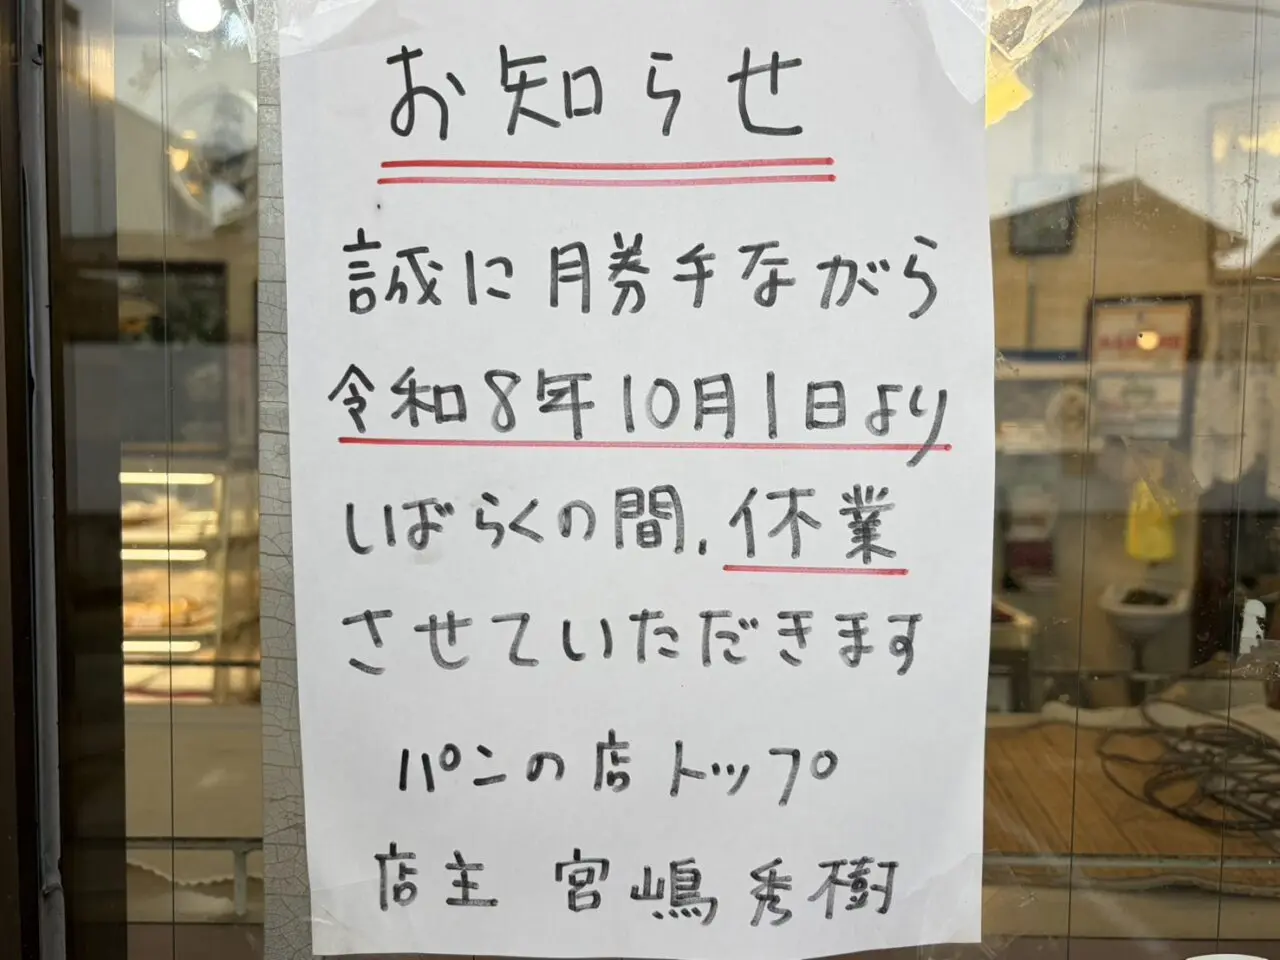 お知らせ
誠に勝手ながら
令和8年10月1日より
しばらくの間、休業
させていただきます
パンの店トップ
店主 宮嶋秀樹